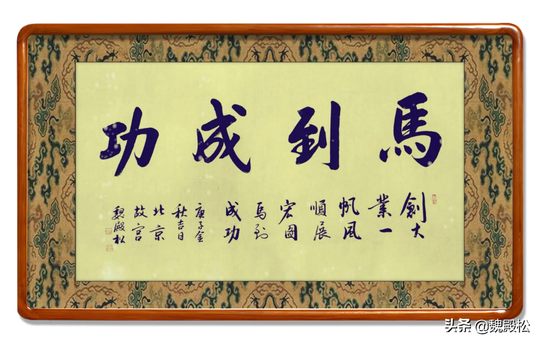 馬到成功
創大
業一
帆風
順展
宏圖
馬到
成功
庚子金
秋吉日
北京
故宫
魏殿松
头条 @魏殿松